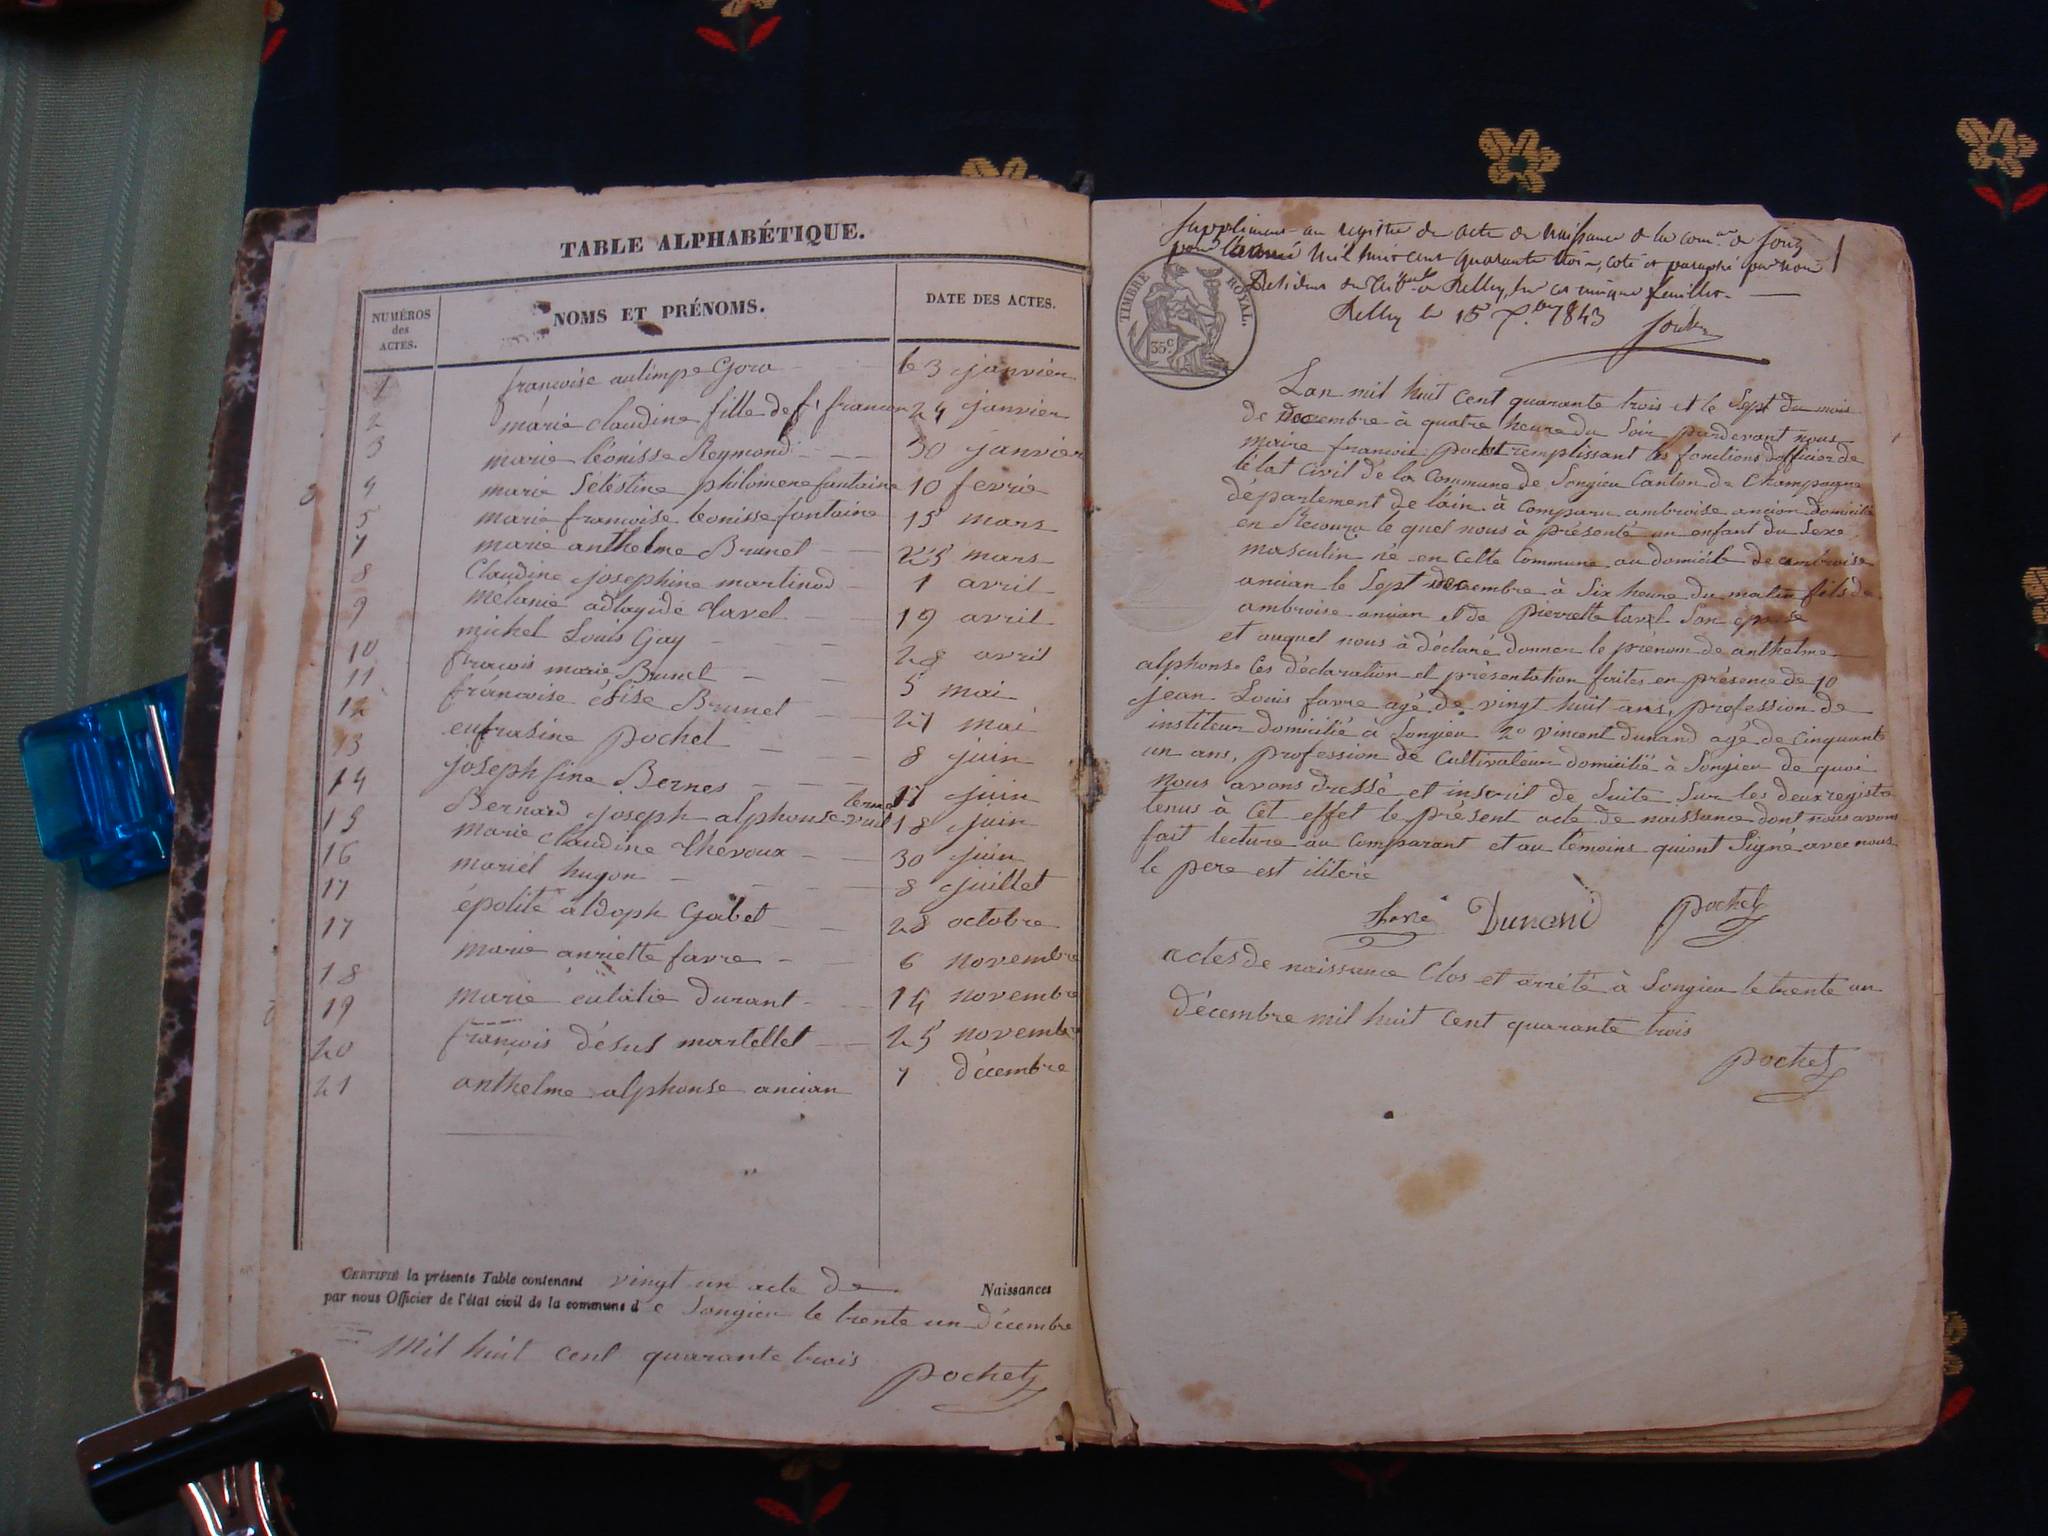 TABLE ALPHABÉTIQUE.
NUMÉROS des ACTES. NOMS ET PRÉNOMS. DATE DES ACTES.
1 françoise aulimpe Gora le 3 janvier
2 marie claudine fille de françoi 24 janvier
3 marie léonisse Reymond 30 janvier
4 marie Selestine philomene fontaine 10 fevrie
5 marie françoise leonisse fontaine 15 mars
7 marie anthelme Brunet 25 mars
8 Claudine josephine martinod 1 avril
9 mélanie adlayide tavel 19 avril
10 michel Louis Gay 28 avril
11 françois marie Brunet 5 mai
12 françoise élise Brunet 27 mai
13 eufrasine pochet 8 juin
14 joseph fine Bernes 17 juin
15 Bernard joseph alphonse 18 juin
16 marie claudine thevoux 30 juin
17 mariét hugon 8 juillet
17 épolite aldoph Gabet 28 octobre
18 marie anriette favre 6 novembre
19 marie eulalie durant 14 novembre
20 françois désus martellet 25 novembre
21 anthelme alphonse ancian 7 décembre
CERTIFIÉ la présente Table contenant vingt un acte de Naissances
par nous Officier de l'état civil de la commune de Songieu le trente un décembre
Mil huit cent quarante trois
pochet
Supplément au registre de acte de Naissance de la comne de Song 1
pour l'année Mil huit cent quarante trois, coté et paraphé par nous
Président du Tribunal de Belley, sur ce unique feuillet.
Belley le 15 Xbre 1843
TIMBRE ROYAL.
35 c
Lan mil huit cent quarante trois et le Sept du mois
de Decembre à quatre heure du Soir pardevant nous
maire françois pochet remplissant les fonctions dofficier de
létat Civil de la Commune de Songieu Canton de Champagne
département de lain à Comparu ambroise ancian domicilié
en le quel nous à présenté un enfant du Sexe
masculin né en Cette Commune au domicile de ambroise
ancian le Sept decembre à Six heure du matin fils de
ambroise ancian et de pierrette tavel Son epouse
et auquel nous à déclaré donner le prénom de anthelme
alphonse Ces déclaration et présentation faites en présence de 1o
jean Louis favre agé de vingt huit ans, profession de
instituteur domicilié à Songieu 2o vincent dunand agé de Cinquante
un ans, profession de Cultivateur domicilié à Songieu de quoi
nous avons dressé et inscrit de Suite Sur les deux registre
tenus à Cet effet le présent acte de naissance dont nous avons
fait lecture au Comparant et au témoins quiont Signé avec nous
le pere est iliteré
favre Dunand pochet
actes de naissance Clos et arrété à Songieu le trente un
décembre mil huit cent quarante trois
pochet